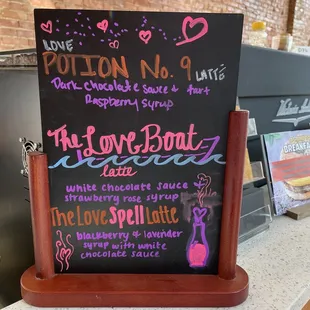 LOVE
POTION No. 9 LATTÉ
Dark chocolate sauce & tart
Raspberry syrup
The Love Boat
latte
white chocolate sauce &
strawberry rose syrup
The Love Spell Latte
blackberry & lavender
syrup with white
chocolate sauce
BREAKFAST